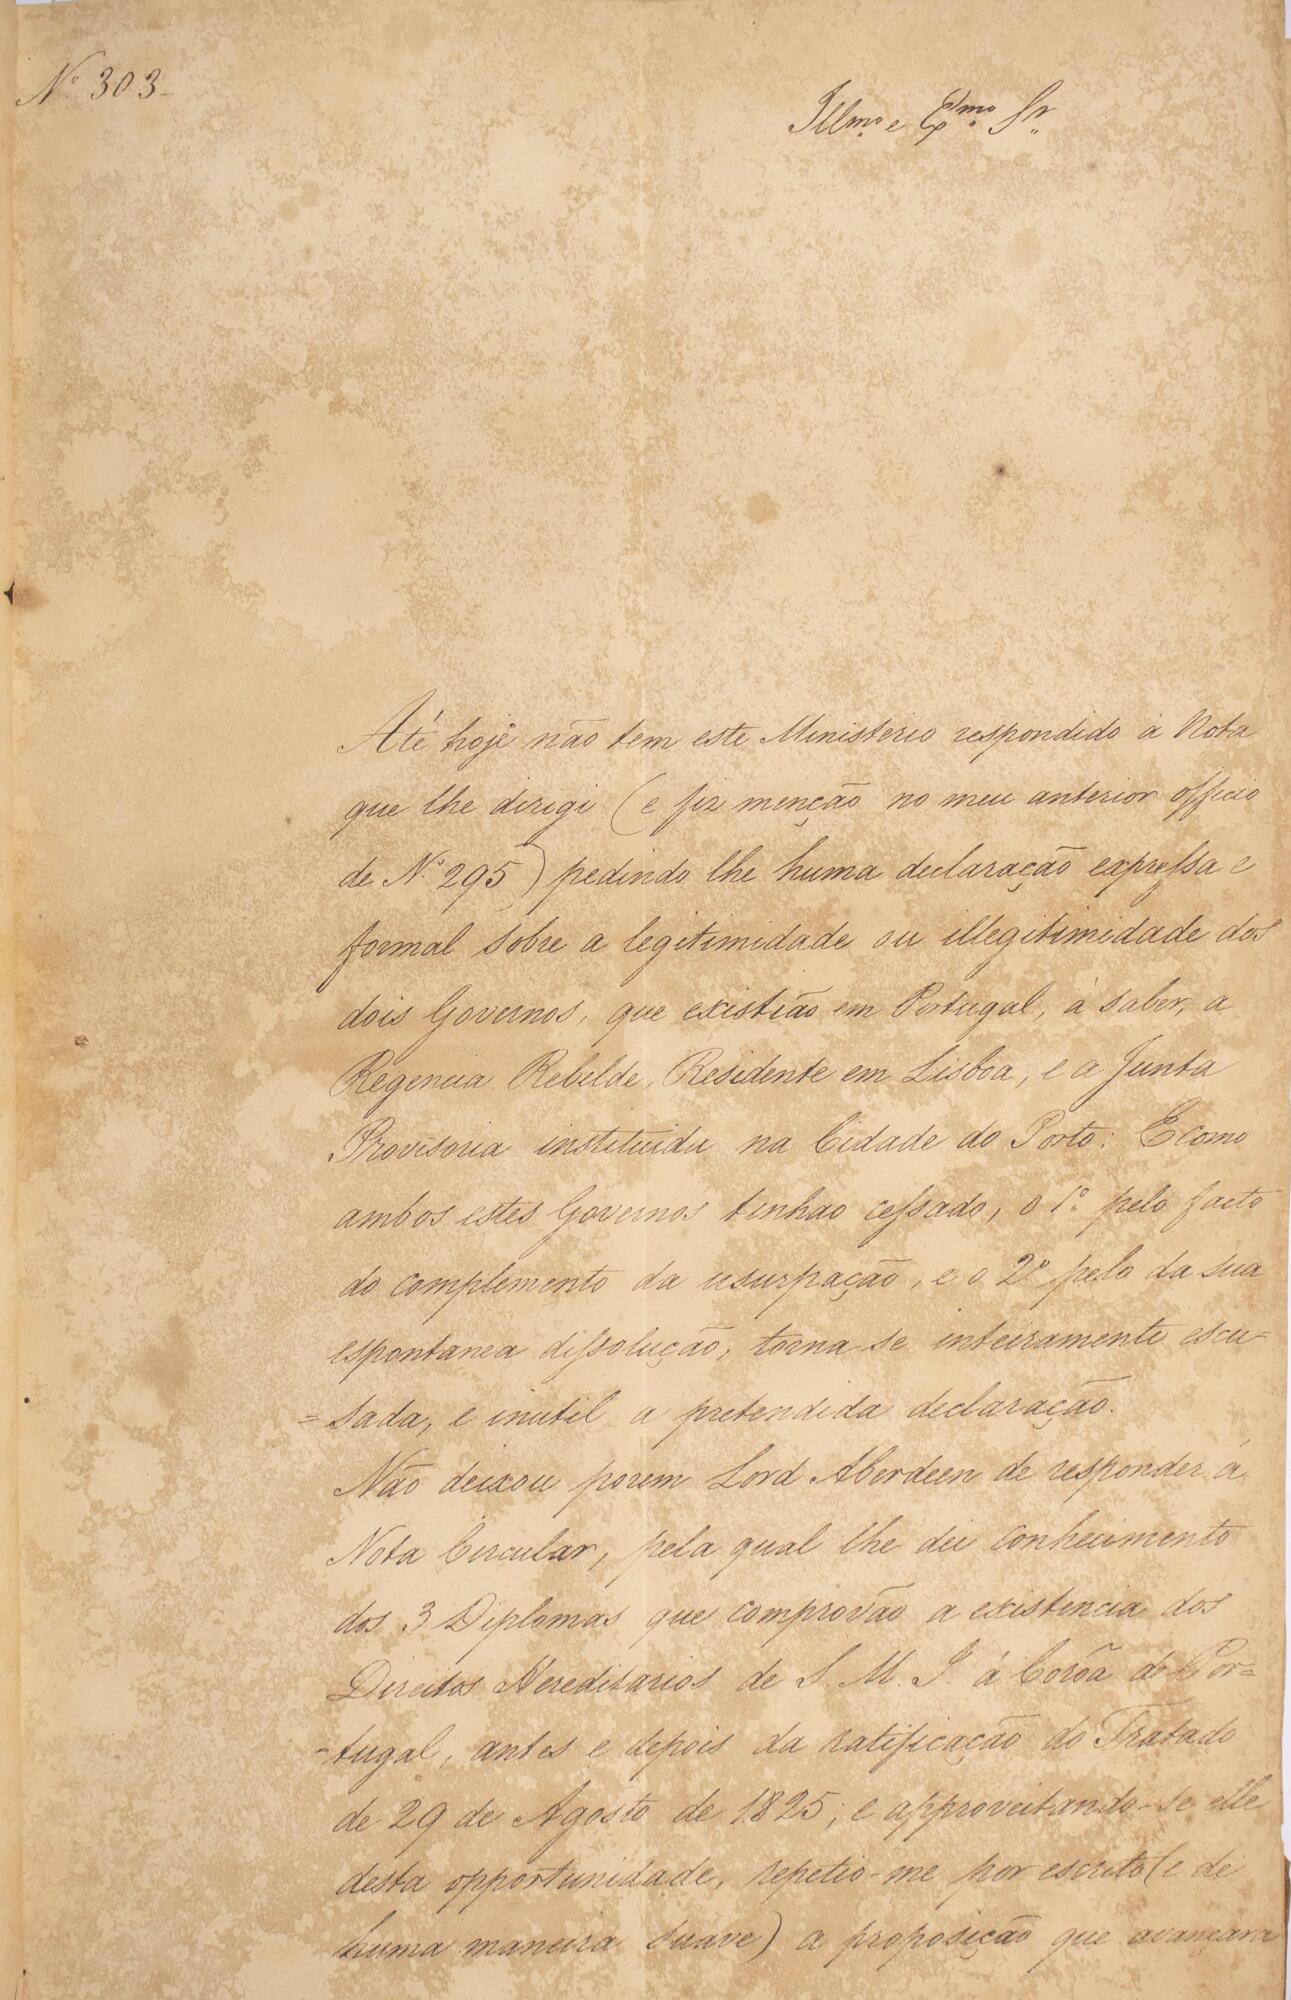 Nº 303
Illmo e Exmo Sr.
Até hoje não tem este Ministerio respondido á Nota
que lhe dirigi (e fiz menção no meu anterior officio
de Nº 295) pedindo lhe huma declaração expressa e
formal sobre a legitimidade ou illegitimidade dos
dois Governos, que existião em Portugal, á saber, a
Regencia Rebelde, Residente em Lisboa, e a Junta
Provisoria instituida na Cidade do Porto: E como
ambos estes Governos tinhao cessado, o 1º pelo facto
do complemento da usurpação, e o 2º pelo da sua
espontanea dissolução, torna-se inteiramente escu=
=sada, e inutil a pretendida declaração.
Não deixou porem Lord Aberdeen de responder á
Nota Circular, pela qual lhe dei conhecimento
dos 3 Diplomas que comprovão a existencia dos
Direitos Hereditarios de S. M. I. á Corôa de Por=
=tugal, antes e depois da ratificação do Tratado
de 29 de Agosto de 1825; e approveitando-se elle
desta opportunidade, repetio-me por escrito (e de
huma maneira suave) a proposição que avançara